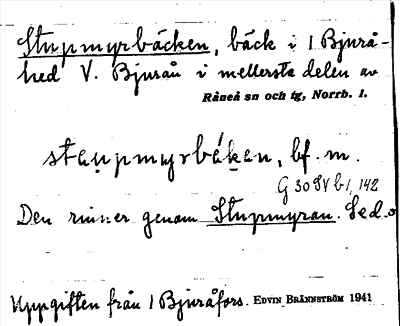 Stupmyrbäcken, bäck i 1 Bjurå-
hed V. Bjuraån i mellersta delen av
Råneå sn och tg, Norrb. l.
staupmyrbäken, bf. m.
G 30 SV b 1, 142
Den rinner genom Stupmyran. Se d. o
Uppgiften från 1 Bjuråfors. EDVIN BRÄNNSTRÖM 1941